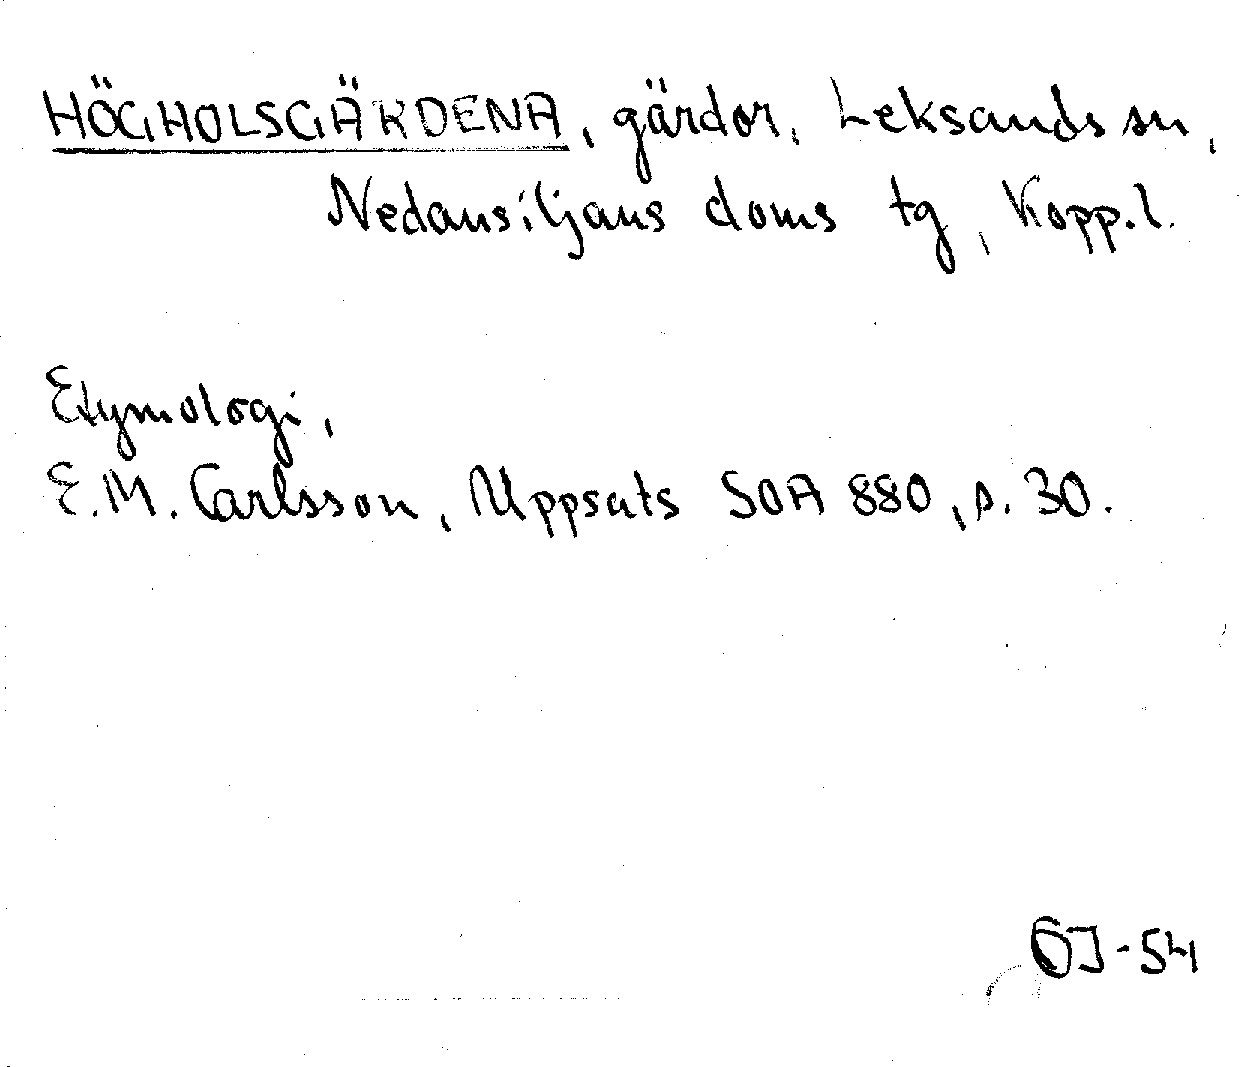 HÖGHOLSGÄRDENA, gärdor, Leksands sn,
Nedansiljans doms tg, Kopp.l.
Etymologi,
E.M. Carlsson, Uppsats SOA 880, s. 30.
ÖJ-54